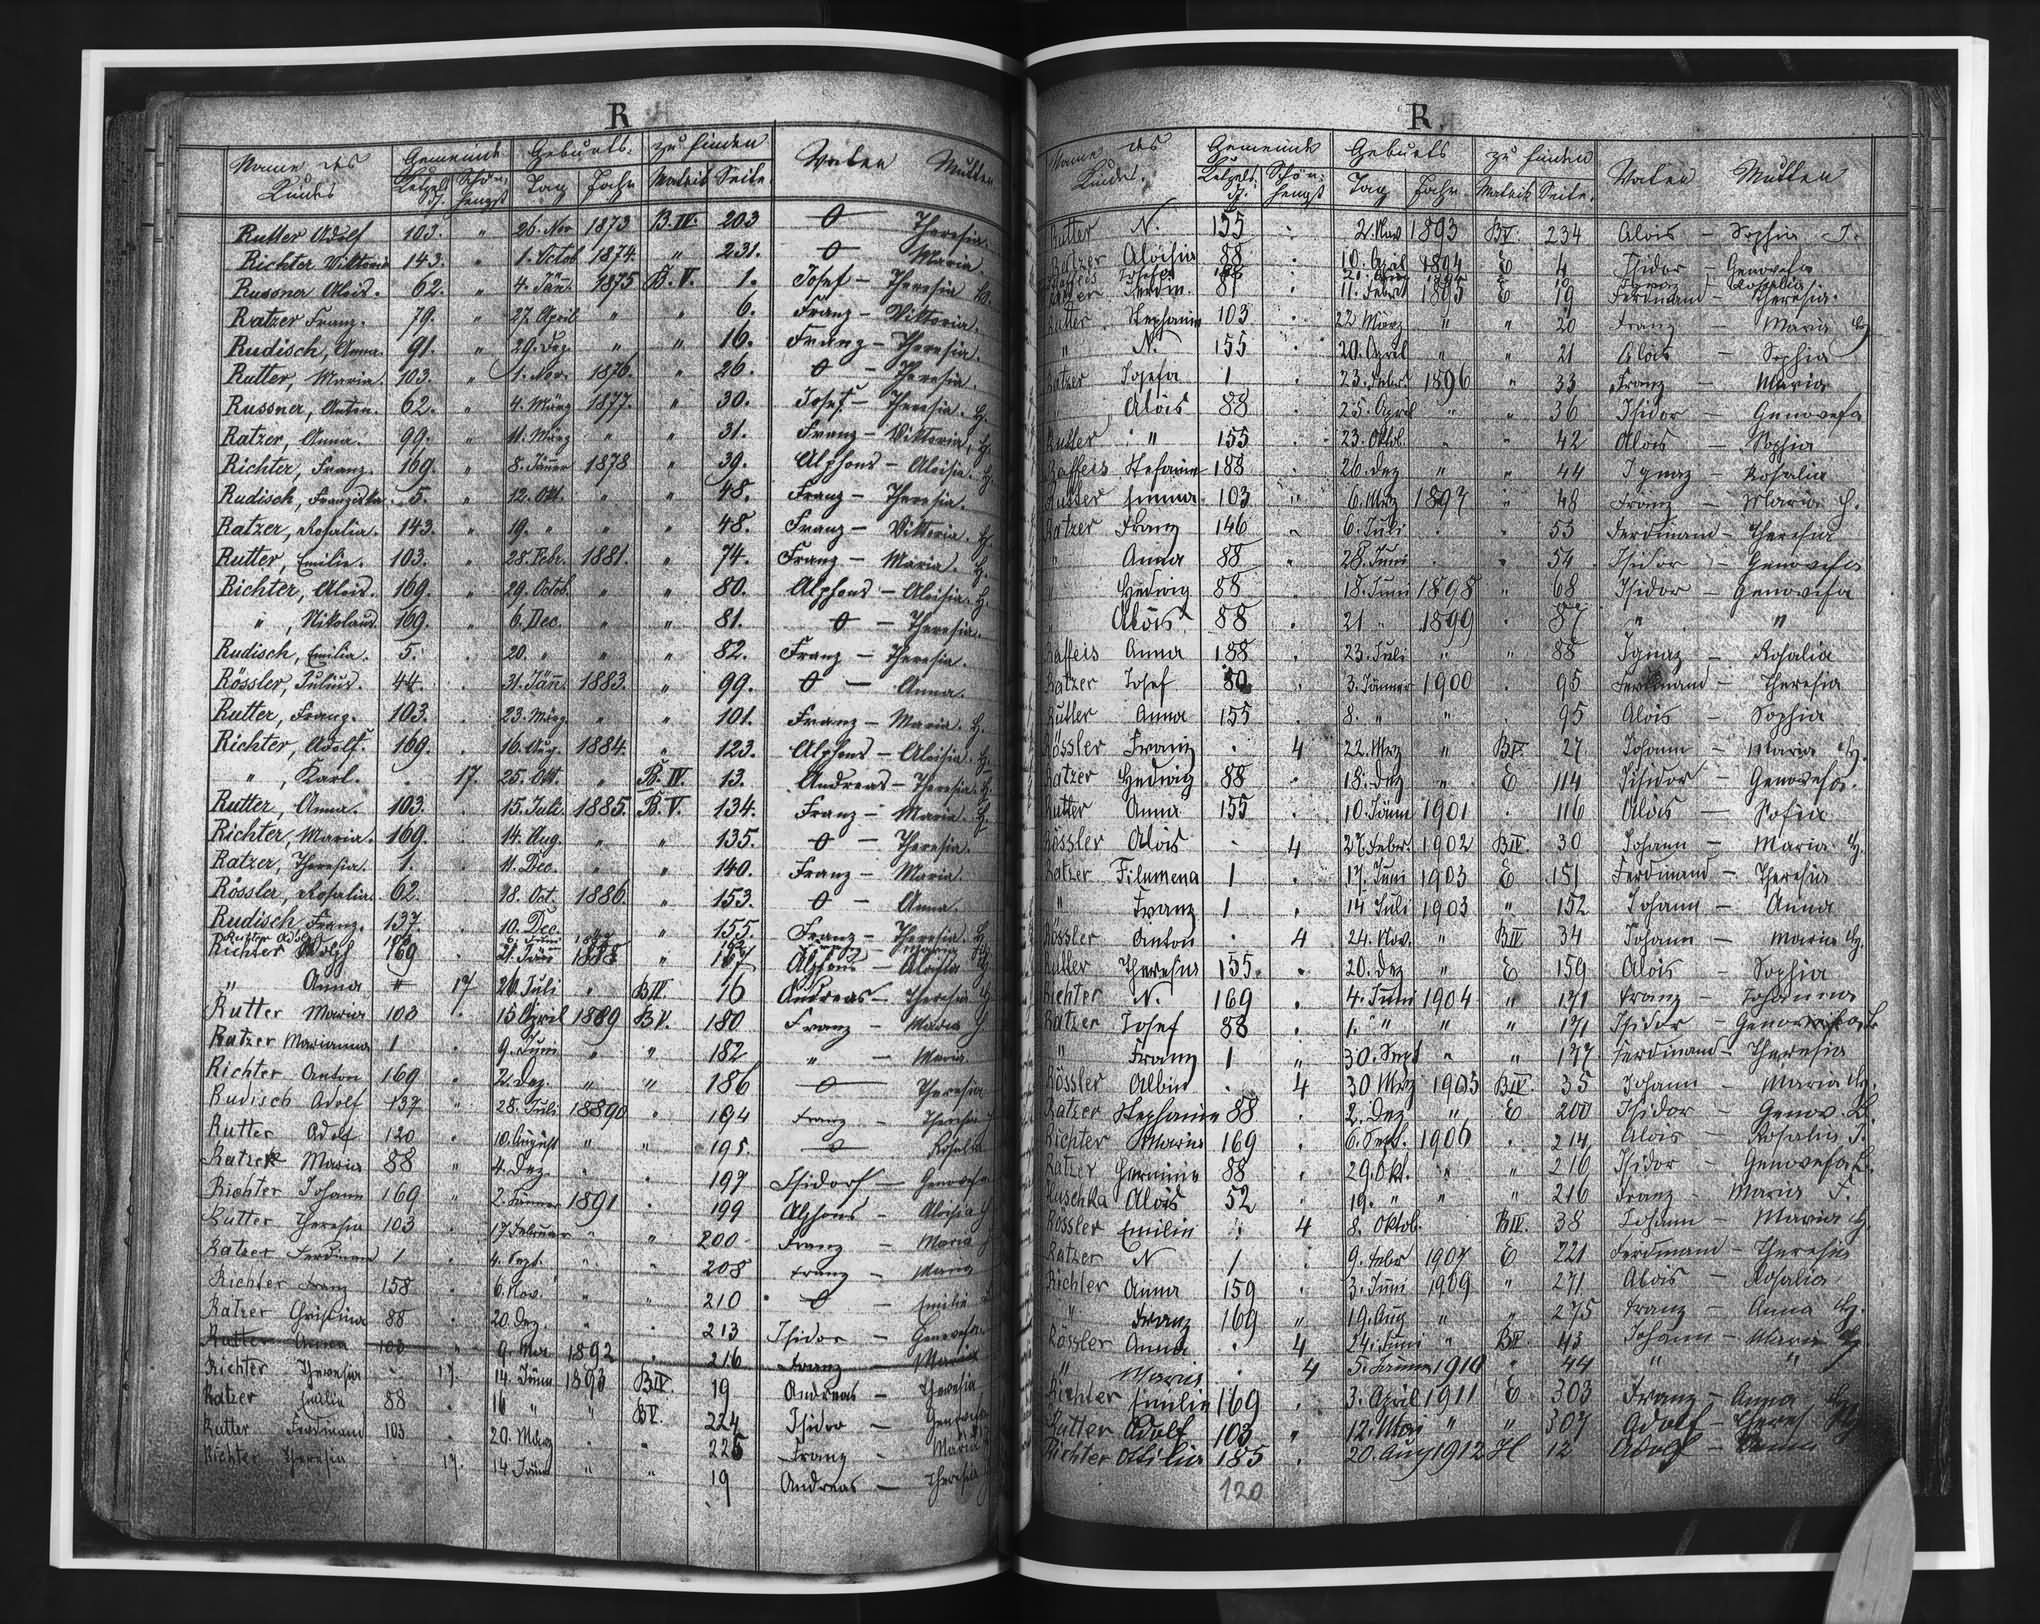 R
Name des Gemeinde Geburts- zu finden Vater Mutter
Kindes Schönhengst Tag Jahr Matrik Seite
Rutter Adolf 103. " 26. Nov 1873 B. IV. 203 O — Theresia.
Richter Viktoria 143. " 1. Octob 1874. " 231. O Maria
Russner Alois. 62. " 4. Jän. 1875 B. V. 1. Josef — Theresia
Ratzer Franz. 79. " 27. April " " 6. Franz — Viktoria.
Rudisch, Anna. 91. " 29. Dez. " " 16. Franz — Theresia.
Rutter, Maria. 103. " 1. Nov. 1876. " 26. O — Theresia.
Russner, Anton. 62. " 4. März 1877. " 30. Josef — Theresia. H.
Ratzer, Anna. 99. " 11. März " " 31. Franz — Viktoria. H.
Richter, Franz. 169. " 8. Jänner 1878 " 39. Alphons — Aloisia. H.
Rudisch, Franziska. 5. " 12. Okt. " " 48. Franz — Theresia.
Ratzer, Rosalia. 143. " 19. " " " 48. Franz — Viktoria. H.
Rutter, Emilie. 103. " 28. Febr. 1881. " 74. Franz — Maria. H.
Richter, Alois. 169. " 29. Octob. " " 80. Alphons — Aloisia. H.
" , Nikolaus. 169. " 6. Dec. " " 81. O — Theresia.
Rudisch, Emilia. 5. . 20. " " " 82. Franz — Theresia.
Rössler, Julius. 44. . 31. Jän. 1883. " 99. O — Anna.
Rutter, Franz. 103. . 23. März. " " 101. Franz — Maria. H.
Richter, Adolf. 169. . 16. Aug. 1884. " 123. Alphons — Aloisia. H.
" , Karl. . 17. 25. Okt. " B. IV. 13. Andreas — Theresia. H.
Rutter, Anna. 103. . 15. Juli. 1885. B. V. 134. Franz — Maria. H.
Richter, Maria. 169. . 14. Aug. " " 135. O — Theresia.
Ratzer, Theresia. 1. . 11. Dec. " " 140. Franz — Maria.
Rössler, Rosalia. 62. . 18. Oct. 1886. " 153. O — Anna.
Rudisch Franz. 137. . 10. Dec. " " 155. Franz — Theresia. H.
Rutter Adolf
Richter Adolf 169 . 21. Jän 1888 " 167 Alphons — Aloisia H
" Anna " 17 20. Juli " B IV. 16 Andreas — Theresia H
Rutter Maria 103 . 15 April 1889 B V. 180 Franz — Maria H
Ratzer Marianna 1 . 9. Juni " " 182 " — Maria
Richter Anton 169 . 2. Dez. " " 186 O Theresia
Rudisch Adolf 137 " 28. Juli 1890 " 194 Franz — Theresia
Rutter Adolf 120 . 10. August " " 195. O Rosalia
Ratzer Maria 88 " 4. Dez. " . 197 Isidor — Genovefa
Richter Johann 169 " 2. Jänner 1891 . 199 Alphons — Aloisia H
Rutter Theresia 103 . 17. Februar " " 200 Franz — Maria H
Ratzer Ferdinand 1 . 4. Sept. " . 208 Franz — Maria
Richter Franz 158 . 6. Nov. " " 210 O — Emilie
Ratzer Christina 88 . 20. Dez. . . 213 Isidor — Genovefa
Rutter Anna 103 " 9. Mai 1892 . 216 Franz — Maria
Richter Theresia - 17. 14. Jänn 1893 B IV. 19 Andreas — Theresia
Ratzer Emilie 88 . 16 " " B V. 224 Isidor — Genovefa
Rutter Ferdinand 103 . 29. März . . 225 Franz — Maria
Richter Theresia . 17. 14 Jänn " " 19 Andreas — Theresia
R.
Name des Gemeinde Geburts zu finden Vater Mutter
Kindes. Schönhengst Tag Jahr Matrik Seite.
Rutter N. 155 . 2. Nov 1893 B V. 234 Alois — Sophia J.
Ratzer Aloisia 88 . 10. April 1894 E 4 Isidor — Genovefa
Ratzer Ferdin. 87 . 11. Febr. 1895 E 19 Ferdinand — Theresia.
Rutter Stephanie 103 . 22 März " " 20 Franz — Maria H
" N. 155 . 20. April " " 21 Alois — Sophia
Ratzer Josefa 1 . 23. Febr. 1896 " 33 Franz — Maria
Alois 88 . 25. April " " 36 Isidor — Genovefa
Rutter " 155 . 23. Oktob. " " 42 Alois — Sophia
Raffeis Stefanie 188 . 26. Dez " " 44 Ignaz — Rosalia
Rutter Emma 103 " 6. Mrz 1897 " 48 Franz — Maria H.
Ratzer Franz 146 " 6. Juli . . 53 Ferdinand — Theresia
Anna 88 " 28. Juni . " 54 Isidor — Genovefa
Hedwig 88 . 18. Juni 1898 " 68 Isidor — Genovefa
" Alois 88 . 21 " 1899 . 87 " "
Raffeis Anna 188 . 23. Juli " " 88 Ignaz — Rosalia
Ratzer Josef 80 . 3. Jänner 1900 . 95 Ferdinand — Theresia
Rutter Anna 155 . 8. " " . 95 Alois — Sophia
Rössler Franz . 4 22. Mrz " B IV. 27 Johann — Maria H.
Ratzer Hedwig 88 . 18. Dez " E 114 Isidor — Genovefa.
Rutter Anna 155 . 10. Jänn 1901 . 116 Alois — Sofia
Rössler Alois . 4 27. Febr. 1902 B IV. 30 Johann — Maria H.
Ratzer Filumena 1 . 17. Juni 1903 E 151 Ferdinand — Theresia
" Franz 1 . 14 Juli 1903 " 152 Johann — Anna
Rössler Anton . 4 24. Nov. " B IV 34 Johann — Maria H.
Rutter Theresia 155. . 20. Dez " E 159 Alois — Sophia
Richter N. 169 . 4. Juni 1904 " 171 Franz — Johanna
Ratzer Josef 88 . 1. " " " 171 Isidor — Genovefa
" Franz 1 " 30. Sept " " 177 Ferdinand — Theresia
Rössler Albin . 4 30 Mrz 1905 B IV 35 Johann — Maria H.
Ratzer Stephanie 88 . 2. Dez " E 200 Isidor — Genov.
Richter Maria 169 . 6. Sept. 1906 . 214 Alois — Rosalia J.
Ratzer Hermine 88 . 29. Okt. " " 216 Isidor — Genovefa
Ruschka Alois 52 " 19. " " " 216 Franz — Maria F.
Rössler Emilie . 4 8. Oktob. B IV. 38 Johann — Maria H.
Ratzer N 1 . 9. Febr 1907 E 221 Ferdinand — Theresia
Richter Anna 159 . 3. Juni 1909 " 271 Alois — Rosalia
" Franz 169 " 19. Aug " " 275 Franz — Anna H.
Rössler Anna . 4 24. Juni " B IV 43 Johann — Maria H.
" Maria . 4 5. Jänner 1910 " 44 " "
Richter Emilie 169 . 3. April 1911 E 303 Franz — Anna
Rutter Adolf 103 " 12. Mai " " 307 Adolf — Theres
Richter Ottilia 185 . 20. Aug 1912 H 12 Adolf — Anna
120